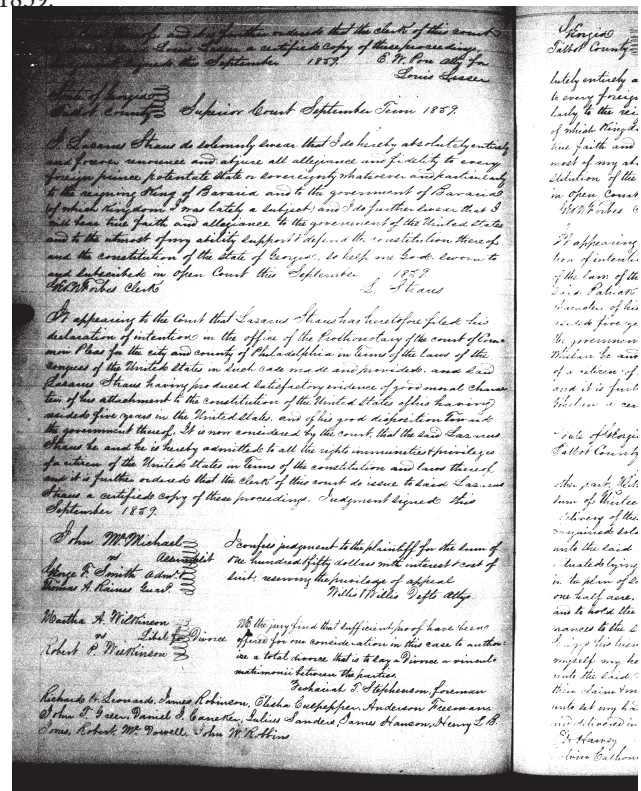 1859.
and it is further ordered that the clerk of this court
Louis Lesser a certified copy of these proceedings
signed this September 1859. E. W. Pou atty for
Louis Lesser
State of Georgia
Talbot County Superior Court September Term 1859.
I Lazarus Straus do solemnly swear that I do hereby absolutely entirely
and forever renounce and abjure all allegiance and fidelity to every
foreign prince potentate state or sovereignty whatsoever and particularly
to the reigning King of Bavaria and to the government of Bavaria
of which Kingdom I was lately a subject, and I do further swear that I
will bear true faith and allegiance to the government of the United States
and to the utmost of my ability support & defend the constitution thereof
and the constitution of the state of Georgia, so help me God. sworn to
and subscribed in open Court this September 1859
Forbes Clerk L. Straus
It appearing to the Court that Lazarus Straus has heretofore filed his
declaration of intention in the office of the Prothonotary of the court of Com-
mon Pleas for the city and county of Philadelphia in terms of the laws of the
congress of the United States in such case made and provided. and said
Lazarus Straus having produced satisfactory evidence of good moral charac-
ter of his attachment to the constitution of the United States of his having
resided five years in the United States, and of his good disposition toward
the government thereof. It is now considered by the court, that the said Lazarus
Straus be and he is hereby admitted to all the rights immunities & privileges
of a citizen of the United States in terms of the constitution and laws thereof
and it is further ordered that the Clerk of this court do issue to said Lazarus
Straus a certified copy of these proceedings. Judgment signed this
September 1859.
John McMichael
vs Assumpsit
George F. Smith admr
Thomas A. Raines Guard.
I confess judgment to the plaintiff for the sum of
one hundred & fifty dollars with interest & cost of
suit, reserving the privilege of appeal
Willis & Willis Defts Attys
Martha A. Wilkinson
vs Libel for Divorce
Robert P. Wilkinson
We the jury find that sufficient proof have been
offered for our consideration in this case to author-
ise a total divorce that is to say a Divorce a vinculo
matrimonii between the parties.
Zechariah T. Stephenson, foreman
Richard H. Leonard, James Robinson, Elisha Culpepper, Anderson
John T. Greer, Daniel J. Julius Sanders, James Hanson, Henry L. B.
Jones, Robert McDowell John W. Robbins
Georgia
Talbot County
lutely entirely a
to every foreign
larly to the rei
of which Kingd
true faith and
most of my ab
stitution of the
in open Court
Forbes
It appearing
tion of intention
of the laws of the
said Patrick
character of his
resided five ye
the governmen
and it is furth
State of Georgia
Talbot County
other part, Wit
sum of thirteen
delivery of the
unto the said
in the plan of
one half acre,
and to hold the
nances to the s
myself my he
unto the said
unto set my ha
and delivered in
Calhoun